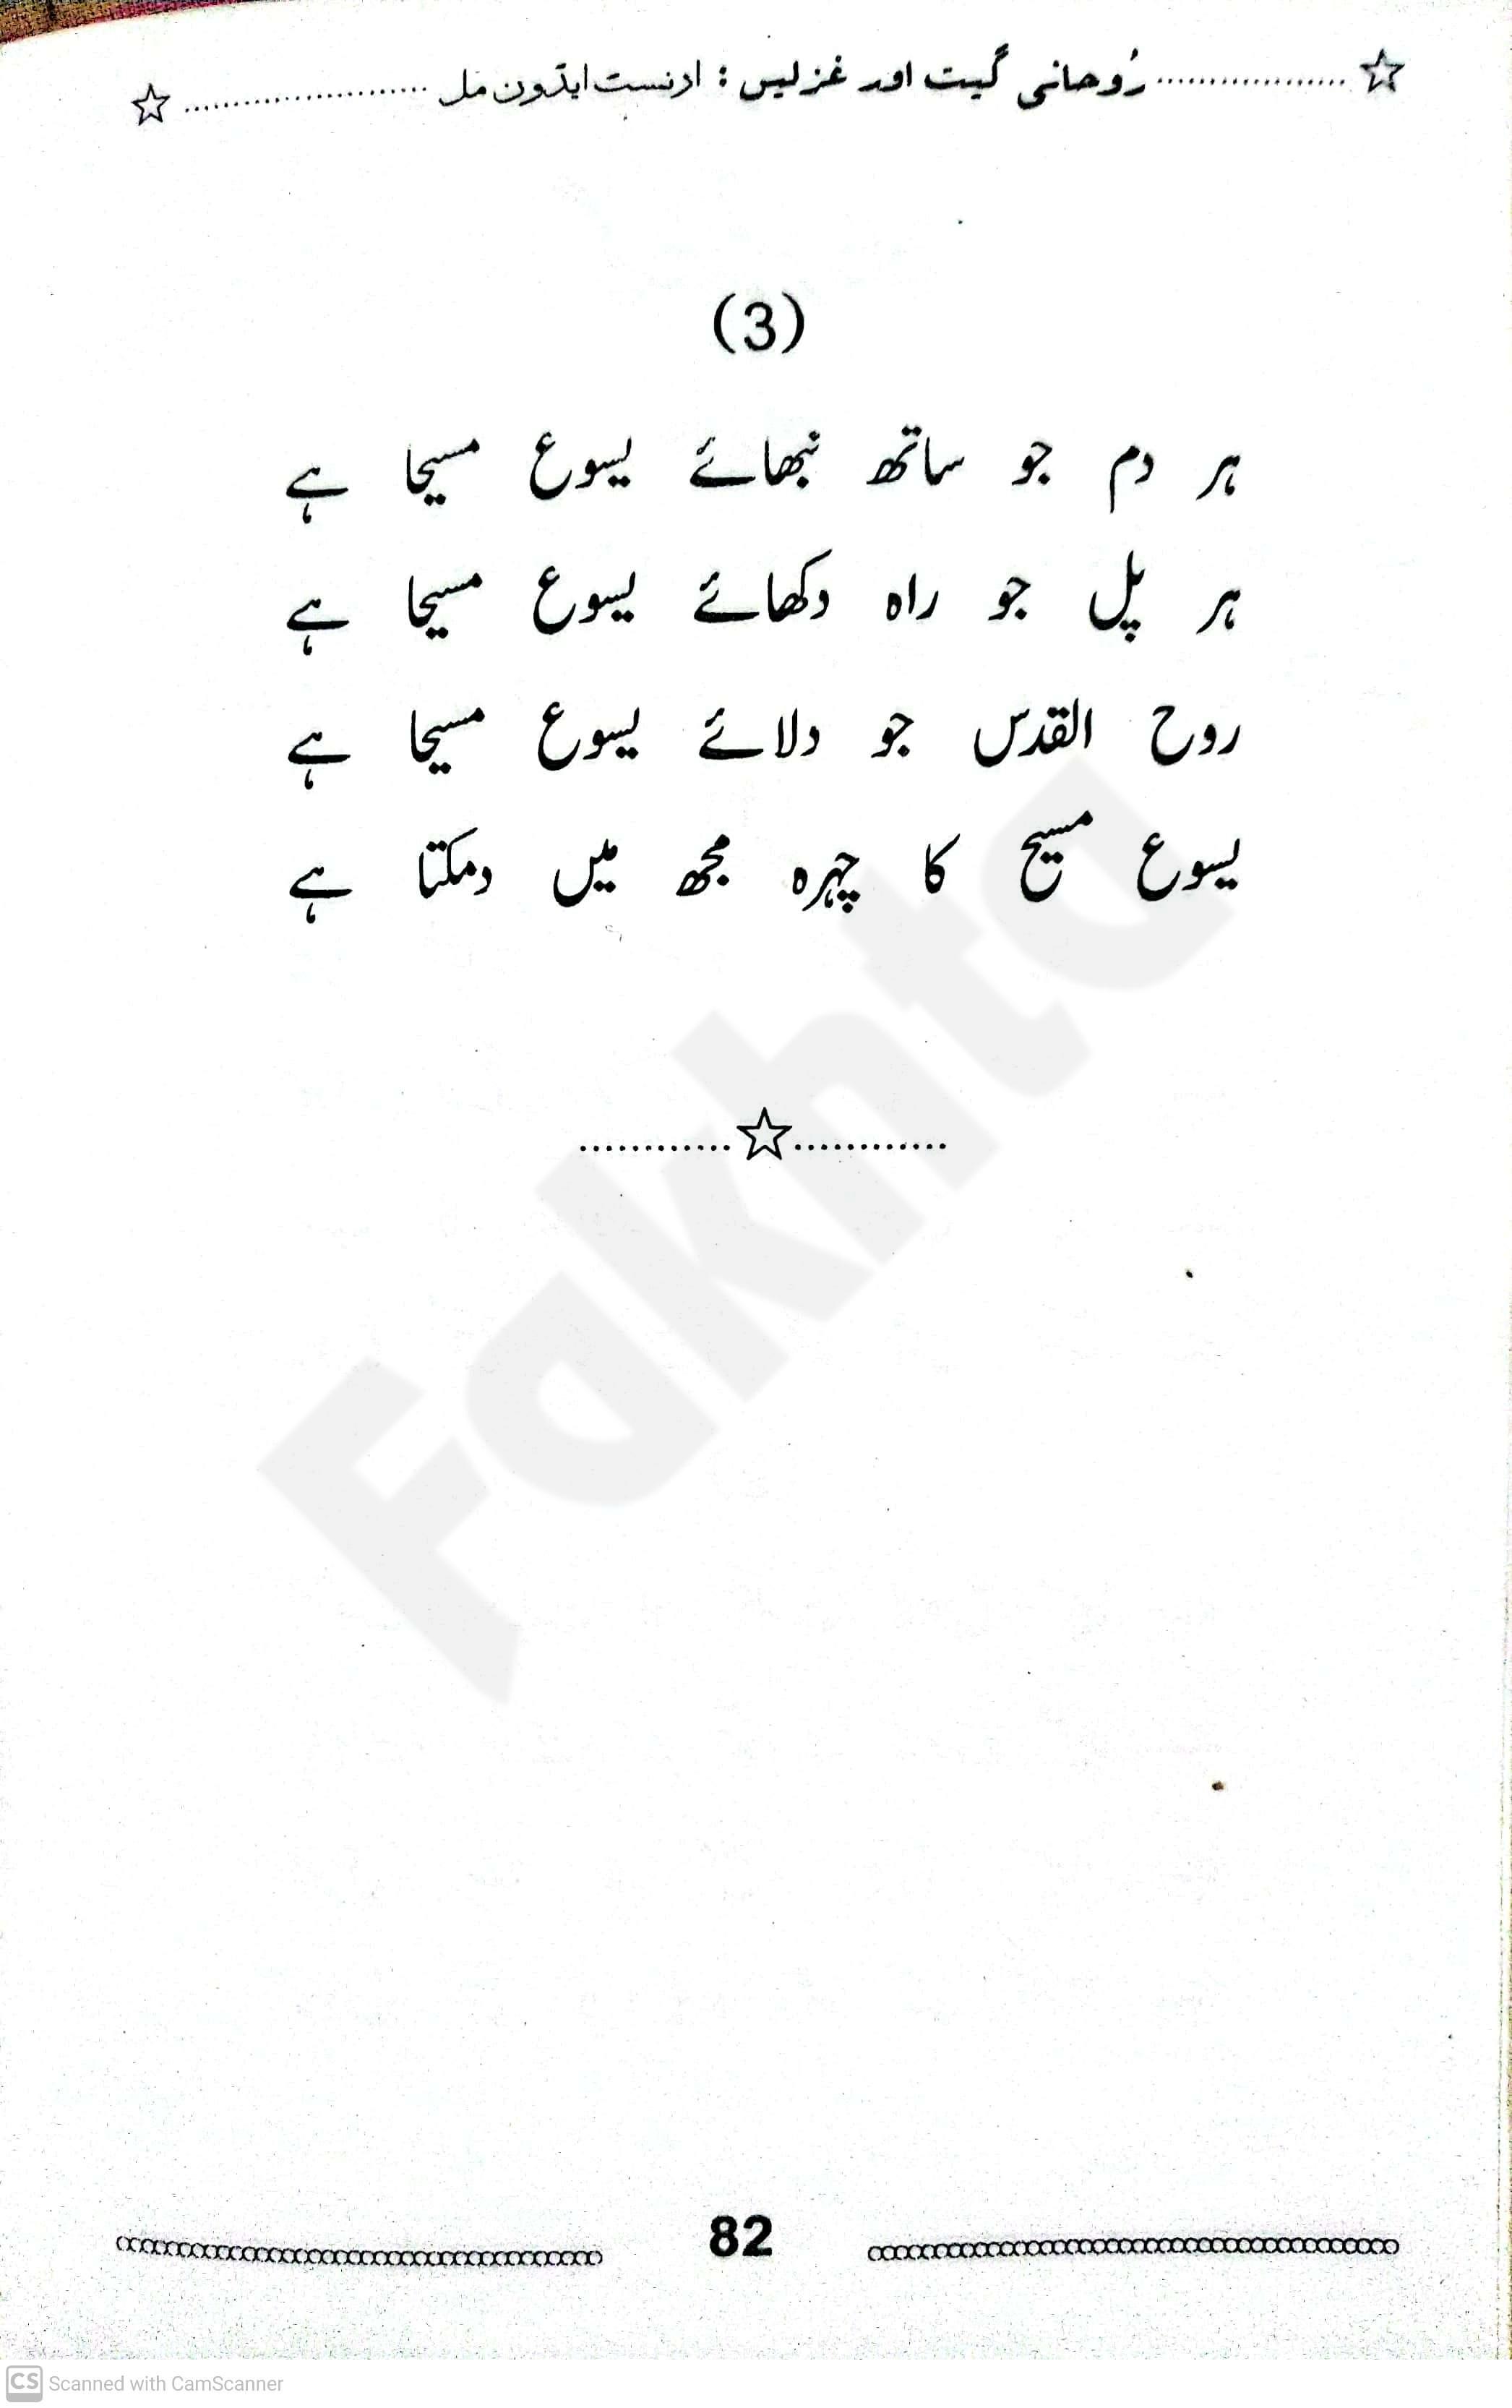 ☆..................رُوحانی گیت اور غزلیں : ارنسٹ ایڈون مل.......................☆
(3)
ہر دم جو ساتھ نبھائے یسوع مسیحا ہے
ہر پل جو راہ دکھائے یسوع مسیحا ہے
روح القدس جو دلائے یسوع مسیحا ہے
یسوع مسیح کا چہرہ مجھ میں دمکتا ہے
............☆............
Fakhta
82
CS Scanned with CamScanner